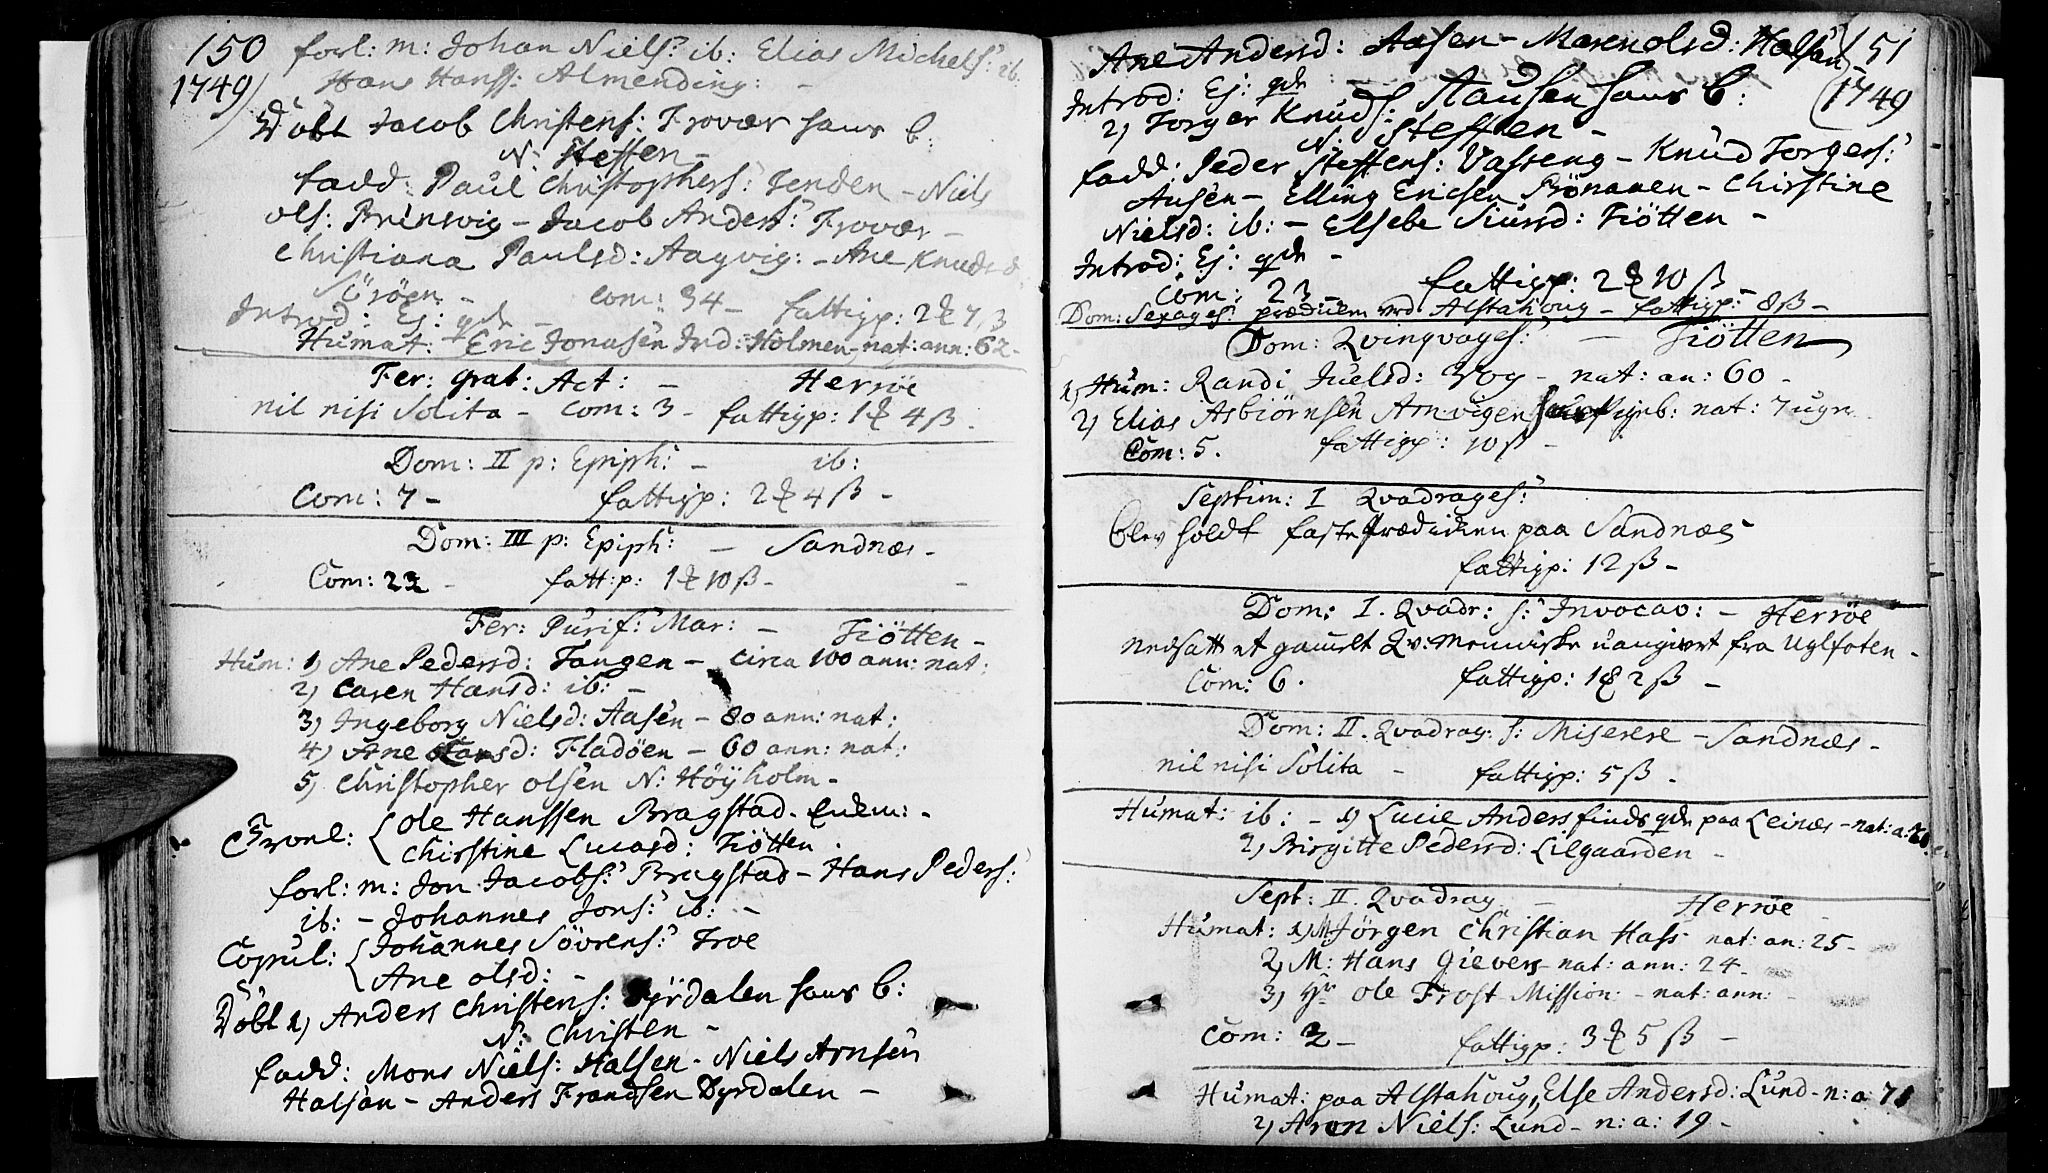 150
forl: m: Johan Niels: ib: Elias Michels: ib.
1749)
Hans Hanss: Almending: -
Döbt Jacob Christens: Trovær hans b:
N: Steffen -
fadd: Paul Christophers: Tenden - Niels
ols: Brinsvig - Jacob Anders: Trovær -
Christiana Paulsd: Aagvig: - Ane Knudsd
Söröen - com: 34 - fattigp: 2 7, 3
Introd: Ej: qdr -
Humat: Eric Jonasen Ind: Holmen - nat: ann: 62 -
Fer: Grat: Act: - Herröe
nil nisi Solita - Com: 3 - fattigp: 1 4 ß -
Dom: II p: Epiph: - ib:
Com: 7 - fattigp: 2 4 ß -
Dom: III p: Epiph: - Sandnæs -
Com: 22 - fatt:p: 1 10 ß -
Fer: Purif: Mar: - Tiötten -
Hum: 1) Ane Pedersd: Tangen - circa 100 ann: nat:
2) Caren Hansd: ib: -
3) Ingeborg Nielsd: Aasen - 80 ann: nat:
4) Ane Larsd: Fladöen - 60 ann: nat:
5) Christopher Olsen N: Höÿholm -
Trovl: { Ole Hanssen Bragstad -
Chirstine Lucasd: Tiötten -
forl: m: Jon Jacobs: Bragstad - Hans Peders:
ib: - Johannes Jons: ib: -
Copul: { Johannes Sövrens: Troe
Ane olsd: -
Döbt 1) Anders Christens: Dÿrdalen hans b:
N: Christen -
fadd: Mons Niels: Halsen - Niels Arnsen
Halsan - Anders Frandsen Dyrdalen -
Ane Andersd: Aasen - Maren olsd: Halsan
151
Introd: Ej: qdr: -
(1749
2) Torger Knuds: Hausen hans b:
N: Steffen -
fadd: Peder Steffens: Vasseng - Knud Torgers:
Ausen - Elling Ericsen Rönanen - Chirstine
Nielsd: ib: - Elsebe Siursd: Tiötten -
Introd: Ej: qdr -
Com: 23 - fattigp: 2 10 ß -
Dom: Sexages: prædiken ved Alstahoug - fattigp: 8 ß -
Dom: Qvinqvages: - Tiötten
1) Hum: Randi Juelsd: Vog - nat: an: 60 -
2) Elias Asbiörnsen Amvigen nat: 7 ugr
Com: 5. fattigp: 10 ß -
Septim: I Qvadrages:
blev holdt fasteprædiken paa Sandnæs
fattigp: 12 ß -
Dom: I. Qvadr: s: Invocav: - Herröe
nedsatt et gamelt Qv: Menniske uangivet fra Uglfoten -
Com: 6. fattigp: 1 2 ß -
Dom: II. Qvadrag: s: Miserere - Sandnæs -
nil nisi Solita - fattigp: 5 ß -
Humat: ib: - 1) Lucie Anders finds qdr paa Leinæs - nat: a: 70
2) Birgitte Pedersd: Lilgaarden -
Sept: II. Qvadrag - Herröe
Humat: 1) M: Jörgen Christian Hass nat: an: 25 -
2) M: Hans Gievers nat: ann: 24 -
3) Hr Ole Frost Mission: - nat: ann: -
Com: 2 - fattigp: 3 5 ß -
Humat: paa Alstahoug, Else Andersd: Lund - n: a: 71
2) Aron Niels: Lund - n: a: 19 -